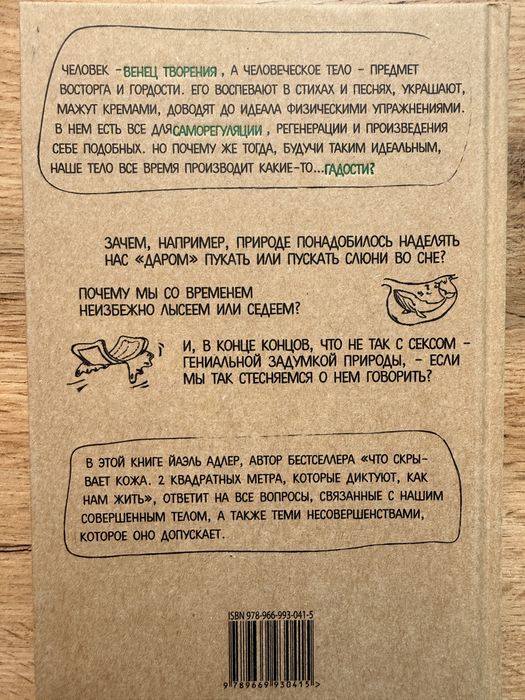 ЧЕЛОВЕК – ВЕНЕЦ ТВОРЕНИЯ , А ЧЕЛОВЕЧЕСКОЕ ТЕЛО – ПРЕДМЕТ
ВОСТОРГА И ГОРДОСТИ. ЕГО ВОСПЕВАЮТ В СТИХАХ И ПЕСНЯХ, УКРАШАЮТ,
МАЖУТ КРЕМАМИ, ДОВОДЯТ ДО ИДЕАЛА ФИЗИЧЕСКИМИ УПРАЖНЕНИЯМИ.
В НЕМ ЕСТЬ ВСЕ ДЛЯ САМОРЕГУЛЯЦИИ , РЕГЕНЕРАЦИИ И ПРОИЗВЕДЕНИЯ
СЕБЕ ПОДОБНЫХ. НО ПОЧЕМУ ЖЕ ТОГДА, БУДУЧИ ТАКИМ ИДЕАЛЬНЫМ,
НАШЕ ТЕЛО ВСЕ ВРЕМЯ ПРОИЗВОДИТ КАКИЕ-ТО...ГАДОСТИ?
ЗАЧЕМ, НАПРИМЕР, ПРИРОДЕ ПОНАДОБИЛОСЬ НАДЕЛЯТЬ
НАС «ДАРОМ» ПУКАТЬ ИЛИ ПУСКАТЬ СЛЮНИ ВО СНЕ?
ПОЧЕМУ МЫ СО ВРЕМЕНЕМ
НЕИЗБЕЖНО ЛЫСЕЕМ ИЛИ СЕДЕЕМ?
И, В КОНЦЕ КОНЦОВ, ЧТО НЕ ТАК С СЕКСОМ –
ГЕНИАЛЬНОЙ ЗАДУМКОЙ ПРИРОДЫ, – ЕСЛИ
МЫ ТАК СТЕСНЯЕМСЯ О НЕМ ГОВОРИТЬ?
В ЭТОЙ КНИГЕ ЙАЭЛЬ АДЛЕР, АВТОР БЕСТСЕЛЛЕРА «ЧТО СКРЫ-
ВАЕТ КОЖА. 2 КВАДРАТНЫХ МЕТРА, КОТОРЫЕ ДИКТУЮТ, КАК
НАМ ЖИТЬ», ОТВЕТИТ НА ВСЕ ВОПРОСЫ, СВЯЗАННЫЕ С НАШИМ
СОВЕРШЕННЫМ ТЕЛОМ, А ТАКЖЕ ТЕМИ НЕСОВЕРШЕНСТВАМИ,
КОТОРОЕ ОНО ДОПУСКАЕТ.
ISBN 978-966-993-041-5
9 789669 930415 >